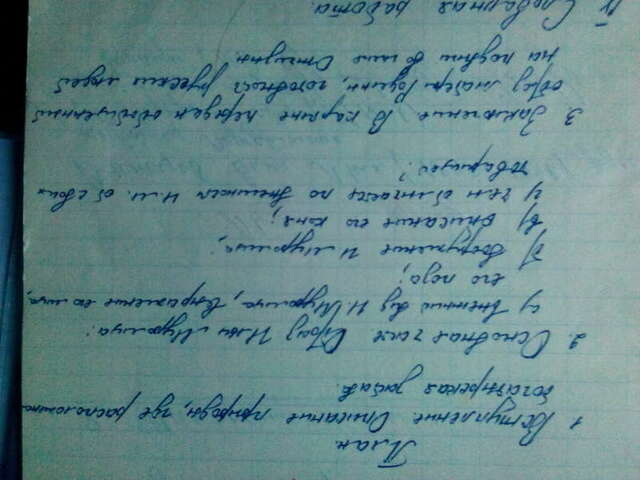 План
1. Вступление. Описание природы, где расположена
богатырская застава.
2. Основная часть. Образ Ильи Муромца:
а) внешний вид И. Муромца, выражение его лица,
его поза;
б) вооружение И. Муромца;
в) описание его коня;
г) чем отличается по внешности И.М. от своих
товарищей?
3. Заключение. В картине передан обобщенный
образ матери Родины, готовность русских людей
на подвиг во имя Отчизны.
IV Словарная работа.